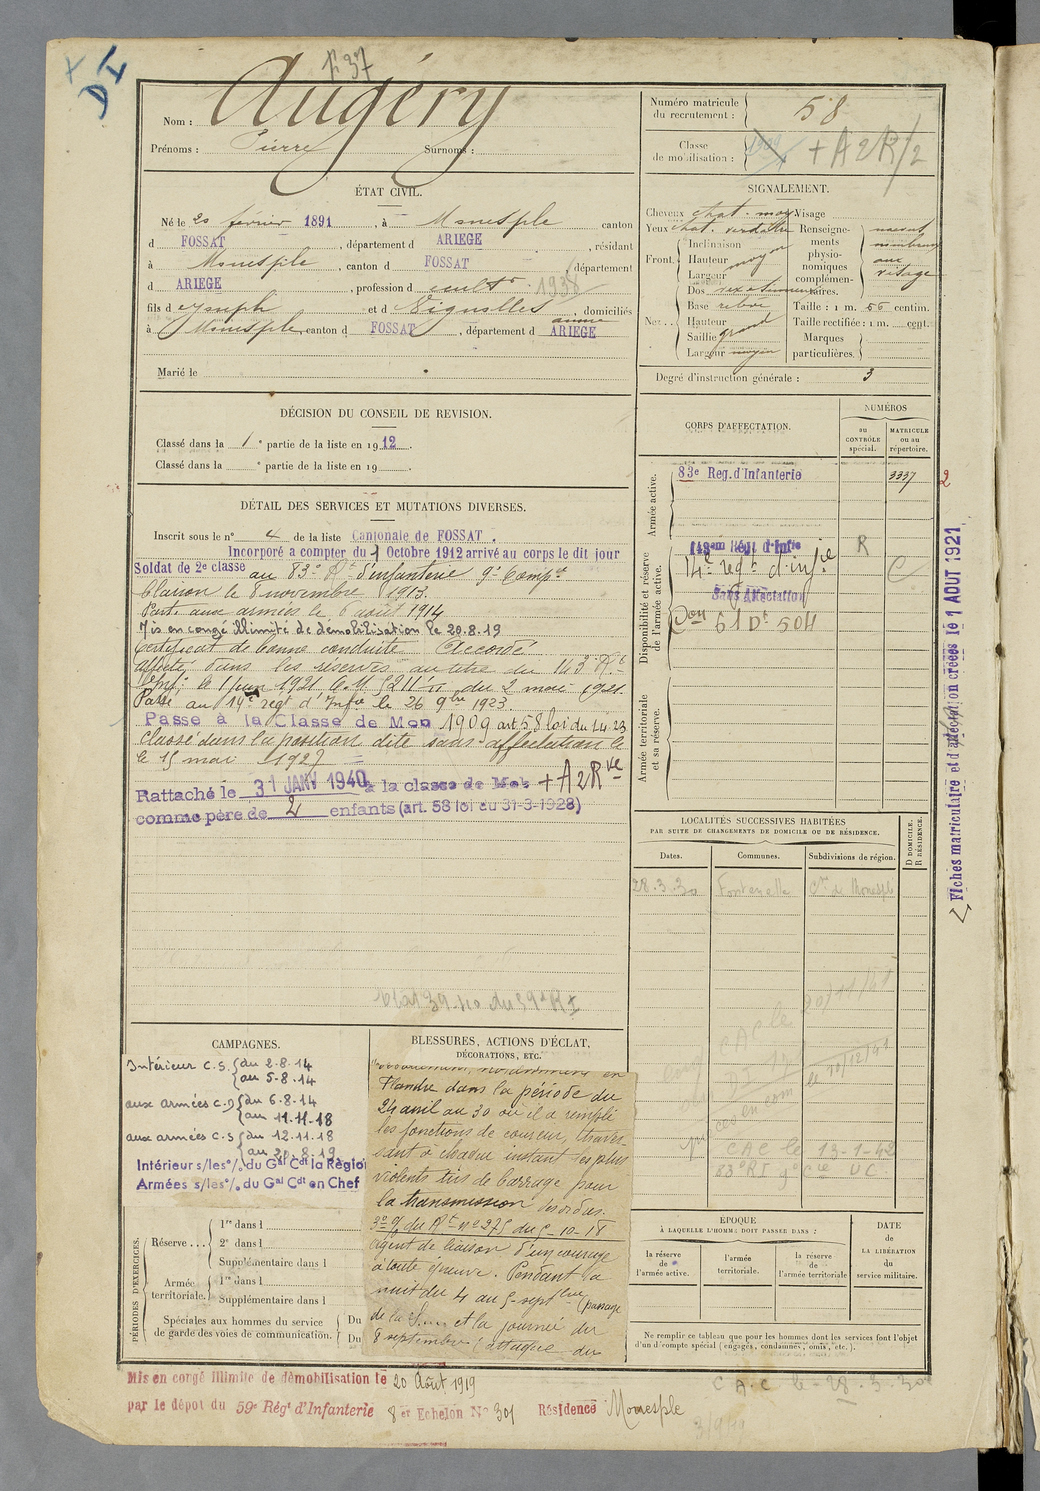 N° 37
DI
Nom : Augéry
Prénoms : Pierre Surnoms :
Numéro matricule du recrutement : 58
Classe de mobilisation : + A2R/2
ÉTAT CIVIL.
Né le 20 février 1891, à Monesple canton
d FOSSAT, département d ARIEGE, résidant
à Monesple, canton d FOSSAT, département
d ARIEGE, profession d cultr 1938
fils d Joseph et d Vignolles anna, domiciliés
à Monesple, canton d FOSSAT, département d ARIEGE
Marié le
SIGNALEMENT.
Cheveux chat. moy Visage
Yeux chat. verdatre
Front. Inclinaison
Hauteur moyen
Largeur
Nez... Dos
Base relevé
Hauteur
Saillie grand
Largeur moyen
Renseignements physionomiques complémentaires. naevus nombreux aux visage
Taille : 1 m. 56 centim.
Taille rectifiée : 1 m. cent.
Marques particulières.
Degré d'instruction générale : 3
DÉCISION DU CONSEIL DE REVISION.
Classé dans la 1e partie de la liste en 1912.
Classé dans la e partie de la liste en 19 .
DÉTAIL DES SERVICES ET MUTATIONS DIVERSES.
Inscrit sous le n° 4 de la liste Cantonale de FOSSAT.
Incorporé a compter du 1 Octobre 1912 arrivé au corps le dit jour
Soldat de 2e classe au 83e Rt d'infanterie 9e Compie
Clairon le 8 novembre 1913.
Parti aux armées le 6 août 1914
Mis en congé illimité de démobilisation le 20.8.19
Certificat de bonne conduite Accordé
Affecté dans les réserves au titre du 143e Rt
Infie le 1 juin 1921 C.M. 5211 du 2 mai 1921.
Passé au 14e régt d'Infie le 26 9bre 1923.
Passe à la Classe de Mob 1909 art 58 loi du 1.4.23
Classé dans la position dite sans affectation le
le 15 mai 1927
Rattaché le 31 JANV 1940 à la classe de Mob + A2Rve
comme père de 2 enfants (art. 58 loi du 31-3-1928)
CORPS D'AFFECTATION.
NUMÉROS
au CONTRÔLE spécial.
MATRICULE ou au répertoire.
Armée active.
83e Reg. d'Infanterie 3337
2
Disponibilité et réserve de l'armée active.
143em Régt d'Infie R
14e régt d'infie C
Sans Affectation
Don 61 Dt 504
Armée territoriale et sa réserve.
Fiches matriculaire et d'affection créées le 1 AOUT 1921
LOCALITÉS SUCCESSIVES HABITÉES
PAR SUITE DE CHANGEMENTS DE DOMICILE OU DE RÉSIDENCE.
Dates. Communes. Subdivisions de région. D DOMICILE. R RÉSIDENCE.
28.3.30 Fontenelle Cne de Monesple
CAC le 13-1-42
CAMPAGNES.
Intérieur C.S. du 2-8-14
au 5-8-14
aux armées C.D du 6-8-14
au 11-11-18
aux armées C.S du 12.11.18
au 20.8.19
Intérieur s/les % du Gal Cdt la Région
Armées s/les % du Gal Cdt en Chef
BLESSURES, ACTIONS D'ÉCLAT, DÉCORATIONS, ETC.
Flandre dans la période du
24 avril au 30 où il a rempli
les fonctions de coureur, traver-
sant à chaque instant les plus
violents tirs de barrage pour
la transmission des ordres.
O/ du Rt n° 275 du 5-10-18
agent de liaison d'un courage
à toute épreuve. Pendant la
nuit du 4 au 5 septbre (passage
de la Somme et la journée du
8 septembre (attaque du
PÉRIODES D'EXERCICES.
Réserve... 1re dans l
2e dans l
Supplémentaire dans l
Armée territoriale. 1re dans l
Supplémentaire dans l
Spéciales aux hommes du service de garde des voies de communication. Du
Du
EPOQUE
À LAQUELLE L'HOMME DOIT PASSER DANS :
la réserve de l'armée active.
l'armée territoriale.
la réserve de l'armée territoriale
DATE DE LA LIBÉRATION du service militaire.
Ne remplir ce tableau que pour les hommes dont les services font l'objet
d'un décompte spécial (engagés, condamnés, omis, etc.).
Mis en congé illimité de démobilisation le 20 Août 1919
par le dépot du 59e Régt d'Infanterie 8er Echelon N° 301 Résidence Monesple
CAC le 28.3.30